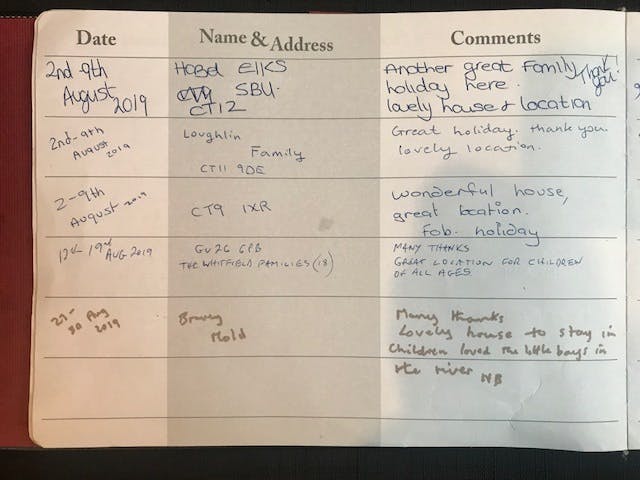 Date Name & Address Comments
2nd-9th
August
2019
Hazel Elks
SBU.
CT12
Another great family
holiday here. Thank you.
lovely house & location
2nd-9th
August 2019
Loughlin
Family
CT11 9DE
Great holiday. thank you.
lovely location.
2-9th
August 2019
CT9 1XR
wonderful house,
great location.
Fab. holiday
12th 19th AUG 2019
GU26 6PB
THE WHITFIELD FAMILIES (18)
MANY THANKS
GREAT LOCATION FOR CHILDREN
OF ALL AGES
30 Aug
2019
Mold
Many thanks
Lovely house to stay in
Children loved the little bays in
the river NB